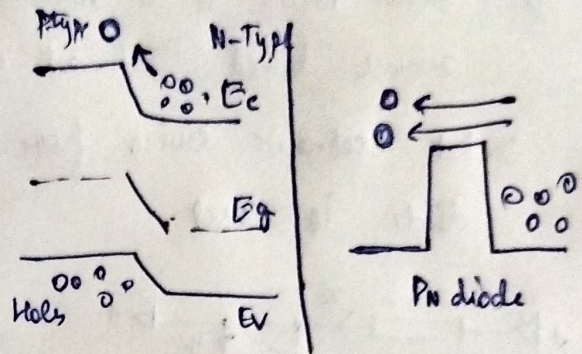 Ptype
N-Type
Ec
Eg
Holes
Ev
PN diode